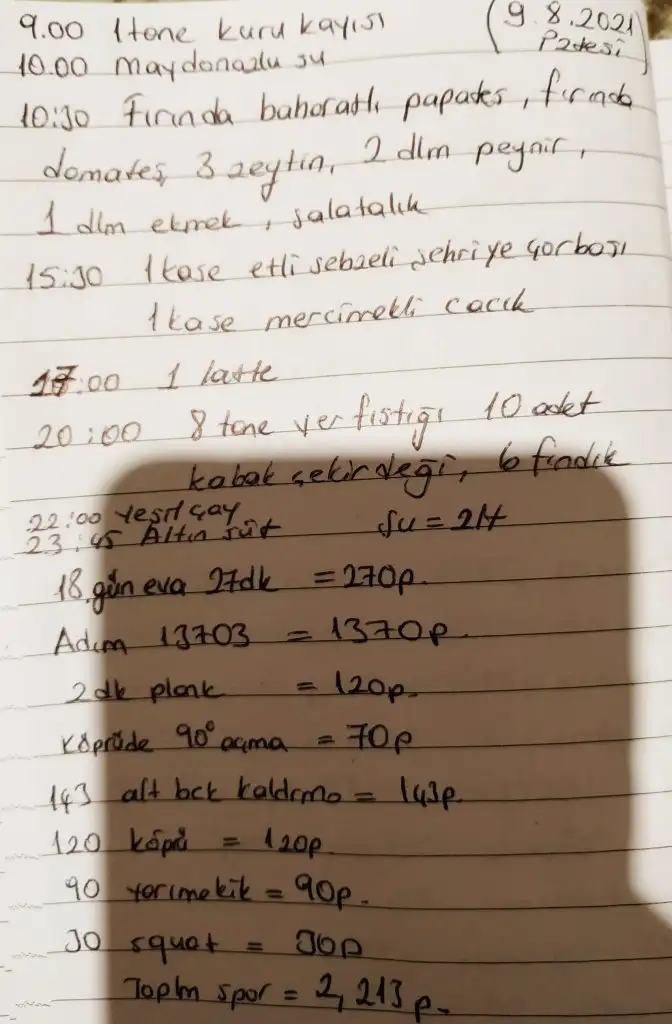 9.00 1 tane kuru kayısı (9.8.2021
10.00 maydonozlu su Pztesi)
10:30 Fırında baharatlı papates, fırında
domates, 3 zeytin, 2 dlm peynir,
1 dlm ekmek, salatalık
15:30 1 kase etli sebzeli şehriye çorbası
1 kase mercimekli cacık
17:00 1 latte
20:00 8 tane yer fıstığı 10 adet
kabak çekirdeği, 6 fındık
22:00 Yeşil çay su = 2 lt
23:45 Altın süt
18. gün eva 27dk = 270p.
Adım 13703 = 1370p.
2 dk plank = 120p.
köprüde 90° açma = 70p
143 alt bck kaldırma = 143p.
120 köpü = 120p
90 yarımekik = 90p.
30 squat = 30p
Toplm spor = 2,213p.